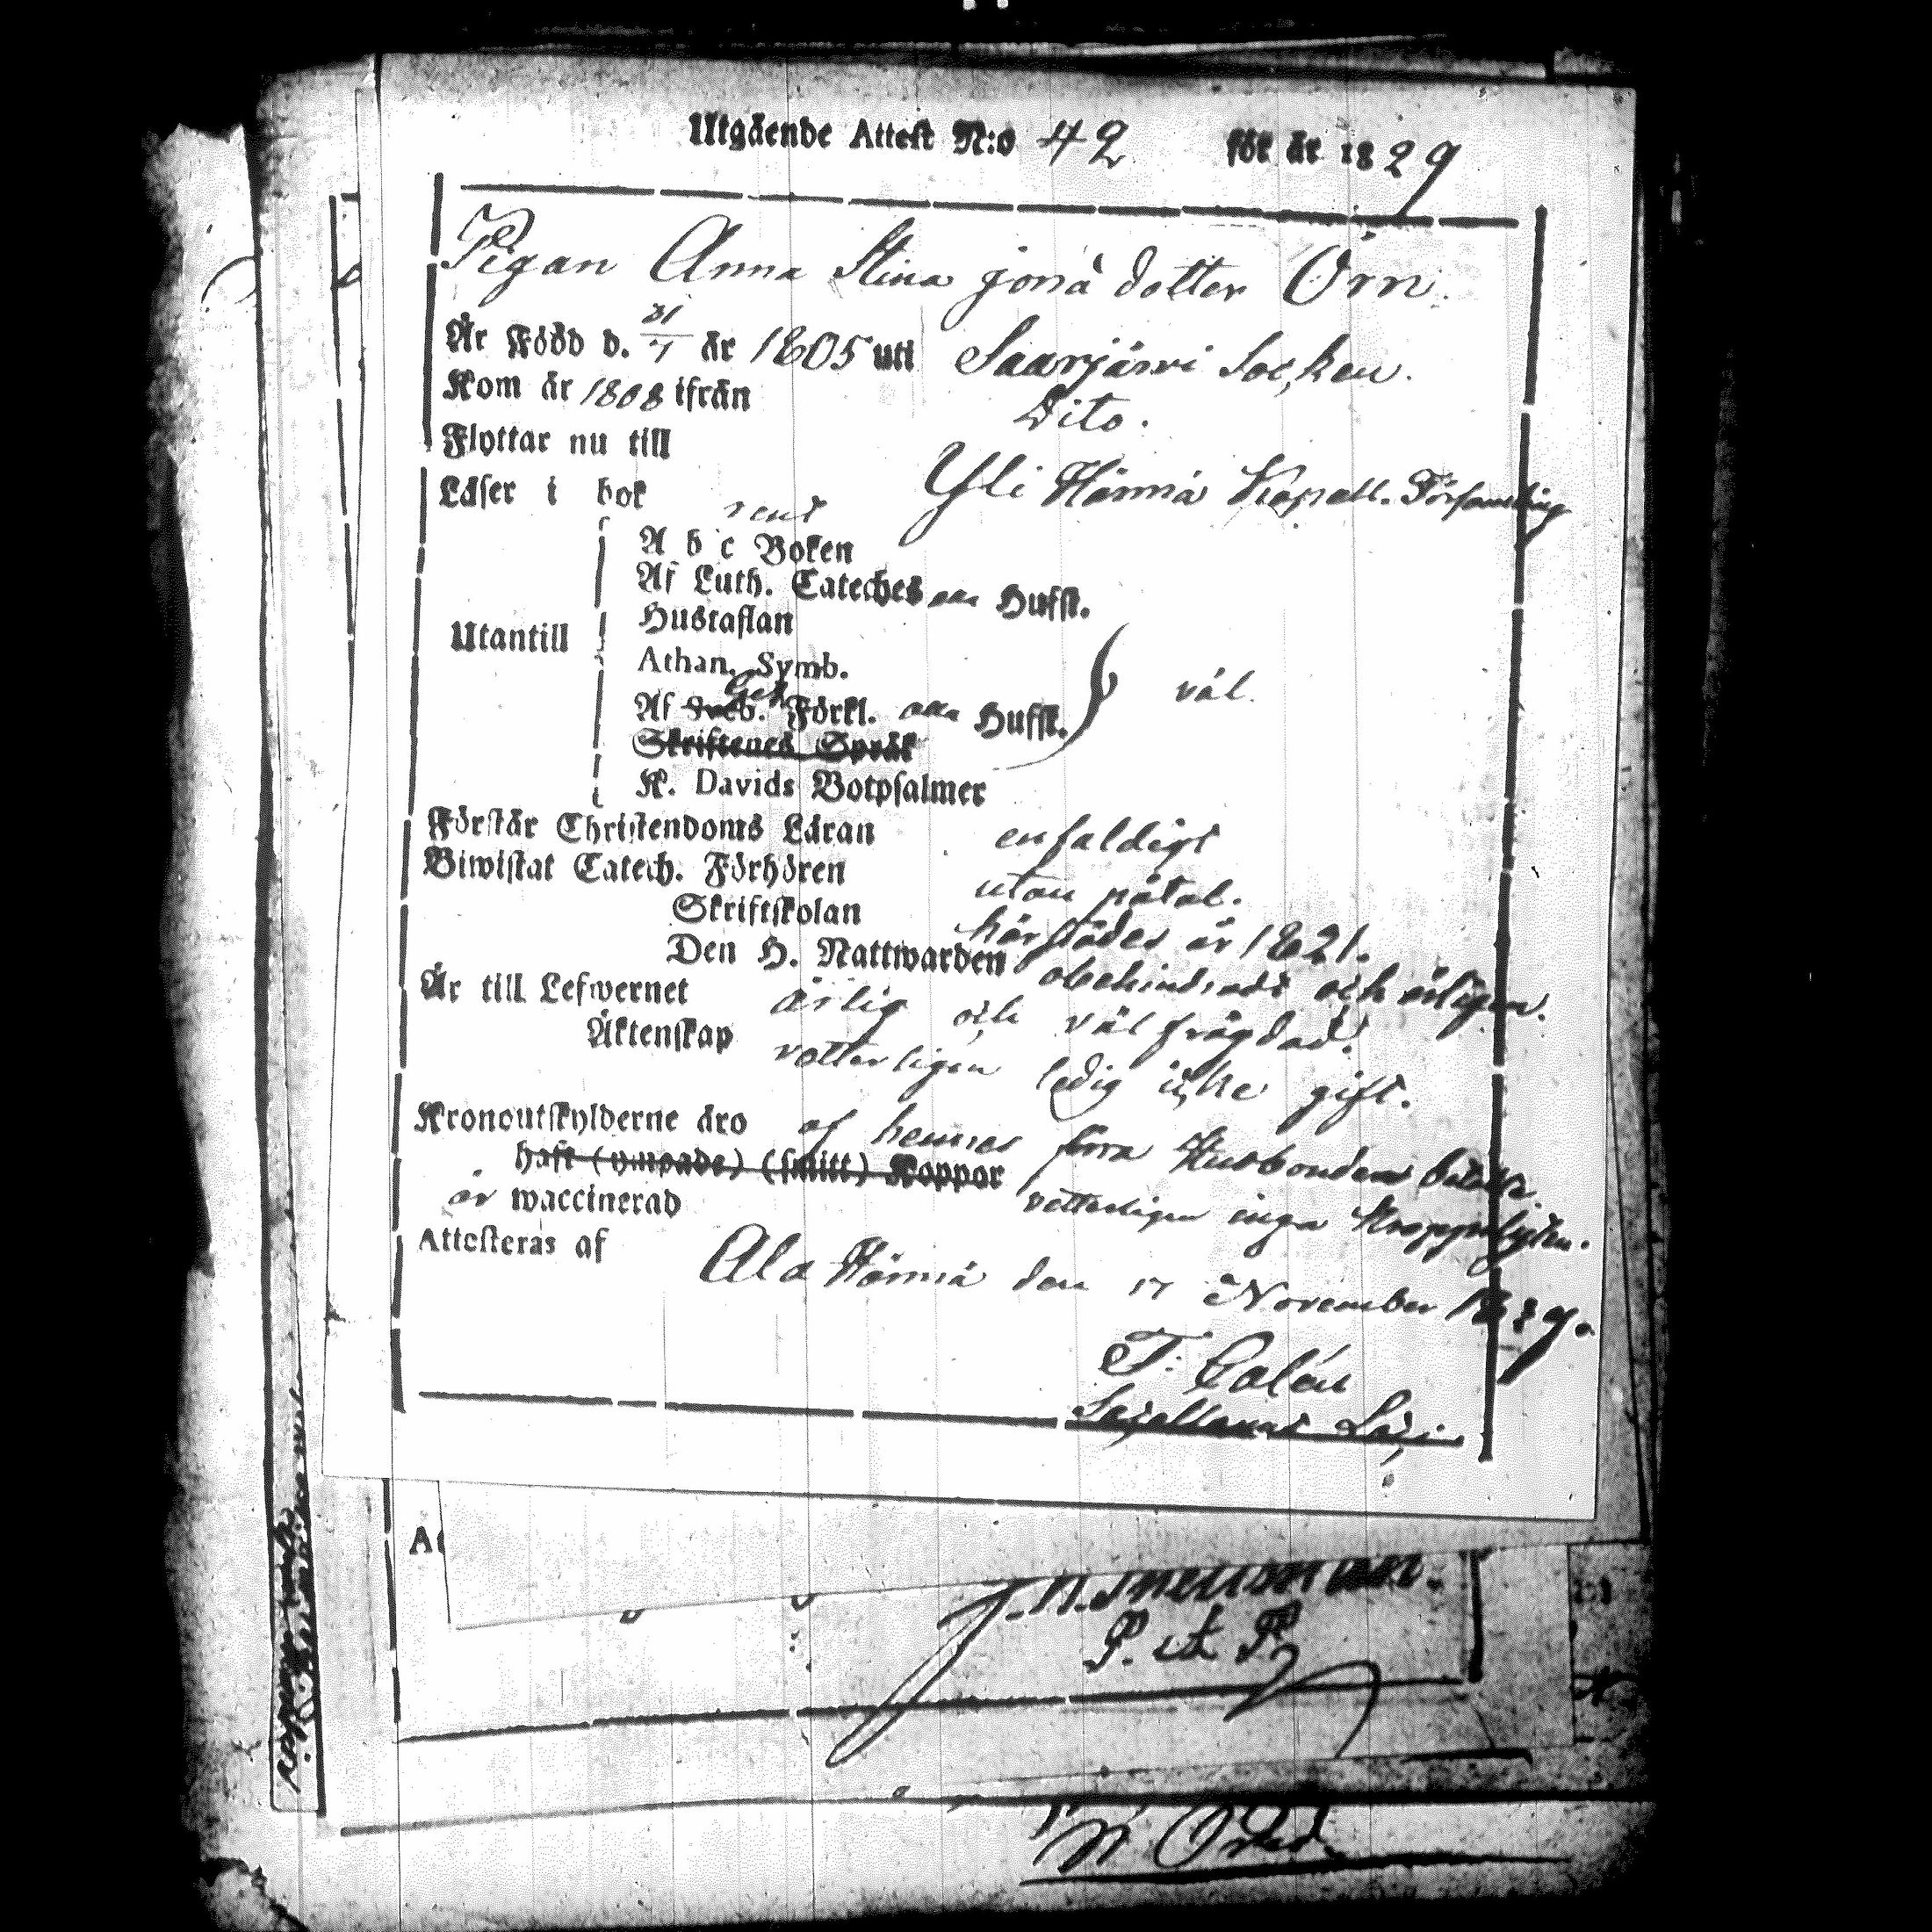 Utgående Attest N:o 42 för år 1829
Pigan Anna Stina jonä dotter Örn.
Är Född d. 31/7 år 1805 uti Saarjärvi Socken.
Kom år 1808 ifrån Dito.
Flyttar nu till Yli Härmä Kapell. Församling
Läser i bok rent
A b c Boken
Af Luth. Cateches alla Hufst.
Hustaflan
Utantill
Athan. Symb. väl.
Af Sveb. Förkl. alla Hufst.
Skriftenes Språk
K. Davids Botpsalmer
Förstår Christendoms Läran enfaldigt
Biwistat Catech. Förhören utan påtal.
Skriftskolan härstädes år 1821.
Den H. Nattwarden obehindradt och årligen.
Är till Lefwernet ärlig och väl frägdad.
Äktenskap vetterligen ledig icke gift.
Kronoutskylderne äro af hennes förra Husbonden
haft (ympade) (smitt) Koppor
är waccinerad vetterligen inga Kroppslyten.
Attesteras af Ala Härmä den 17 November 1829.
T: Calén
J. N. Snellman.
P. et P.